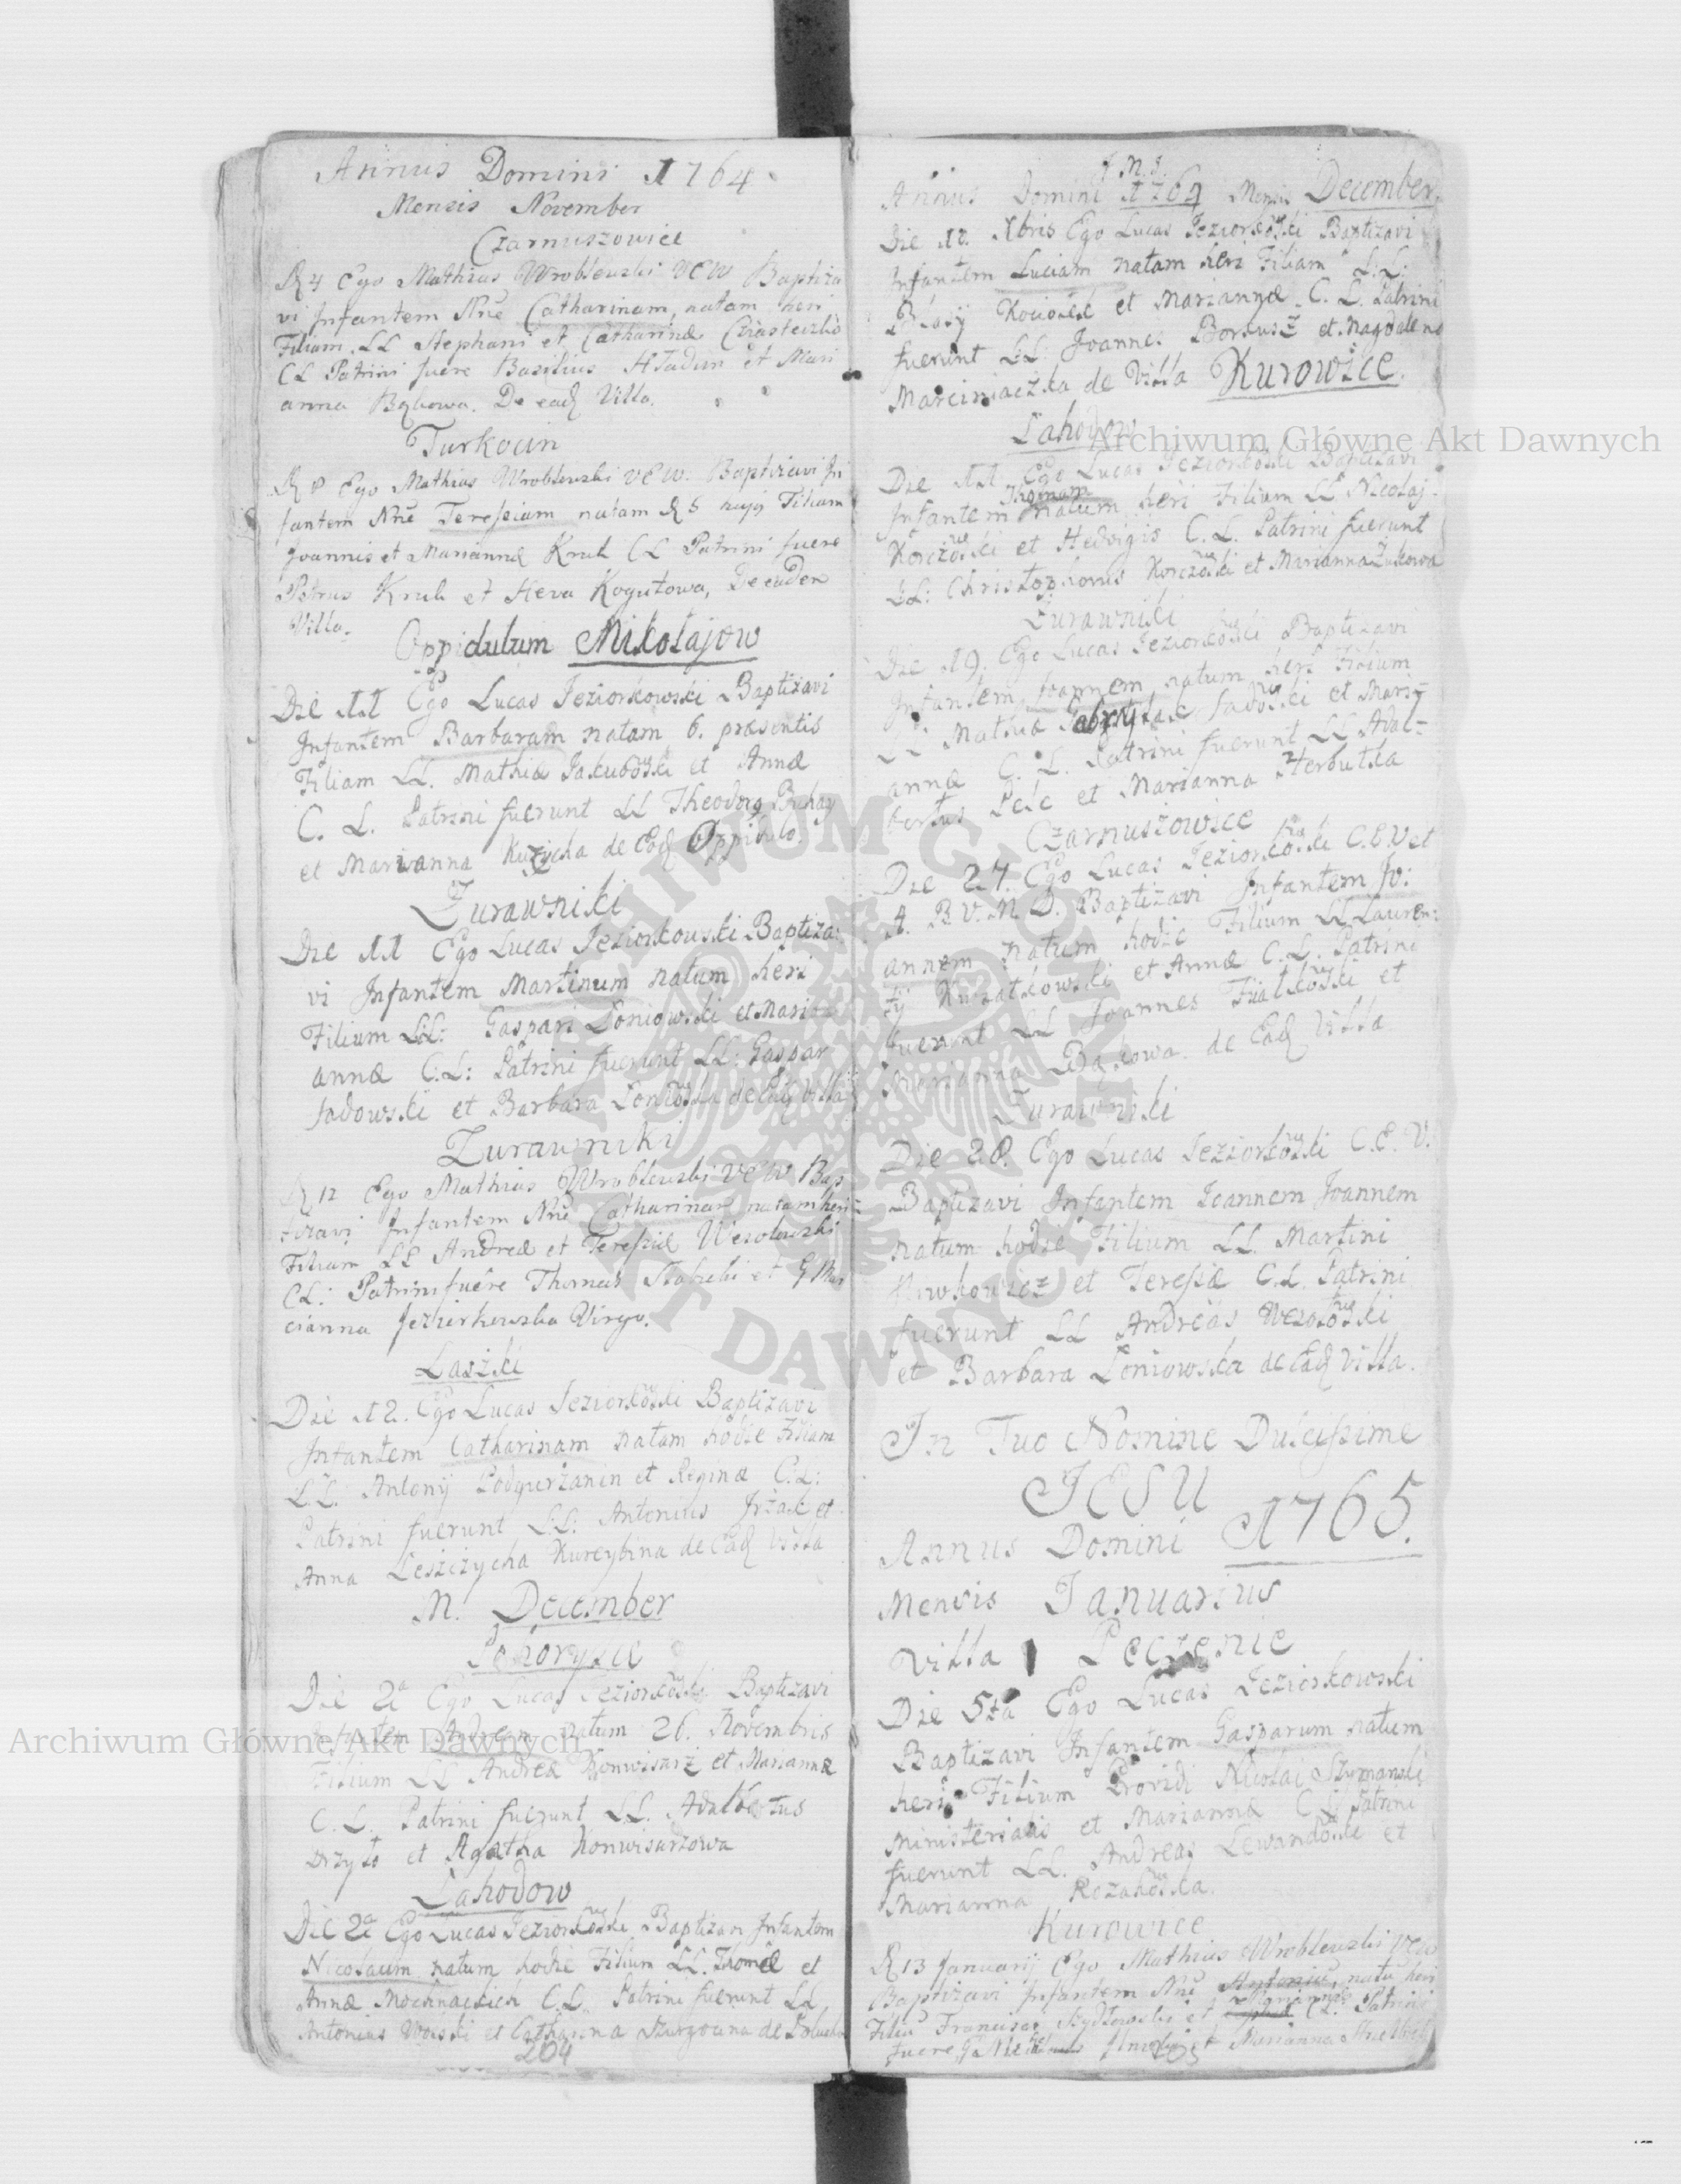 Annus Domini 1764
Mensis November
Czarnuszowice
D 4 Ego Mathias Wroblewski VCW Baptiza
vi Infantem Nne Catharinam, natam heri
Filiam LL Stephani et Catharinæ
CL Patrini fuere Basilius et Mari
anna Bąkowa. De ead Villa.
Turkocin
D 8 Ego Mathias Wroblewski VCW. Baptizavi In
fantem Nne Teresiam natam D 5 hujus Filiam
Joannis et Mariannæ Kruk CL Patrini fuere
Petrus Kruk et Heva Kogutowa, De eadem
Villa.
Oppidulum Mikołajow
Die 11 Ego Lucas Jeziorkowski Baptizavi
Infantem Barbaram natam 6. præsentis
Filiam LL. Mathiæ Jakubowski et Annæ
C. L. Patrini fuerunt LL Theodorus
et Marianna de Ead Oppidulo.
Zurawniki
Die 11 Ego Lucas Jeziorkowski Baptiza:
vi Infantem Martinum natum heri
Filium LL: Gaspari Loniowski et Mari
annæ C.L: Patrini fuerunt LL: Gaspar
Sadowski et Barbara Loniowska de Ead Villa
Zurawniki
D 12 Ego Mathias Wroblewski VCW Bap
tizavi Infantem Nne Catharinam natam heri
Filiam LL Andreæ et Teresiæ Wesolowski
CL: Patrini fuere Thomas et G Mar
cianna Jezierkowska Virgo.
Laszki
Die 12. Ego Lucas Jeziorkowski Baptizavi
Infantem Catharinam natam hodie Filiam
LL. Antonij Podgurzanin et Reginæ C.L:
Patrini fuerunt LL: Antonius et
Anna Leszczycha Kureybina de Ead Villa
M. December
Die 2a Ego Lucas Jeziorkowski Baptizavi
Infantem Andream natum 26. Novembris
Filium LL Andreæ Konwisarz et Mariannæ
C. L. Patrini fuerunt LL. Adalbertus
et Agatha Konwisarzowa
Lahodow
Die 2a Ego Lucas Jeziorkowski Baptizavi Infantem
Nicolaum natum hodie Filium LL. Thomæ et
Annæ C.L. Patrini fuerunt LL
Antonius et Catharina de
204
J.M.J.
Annus Domini 1764 Mensis December.
Die 10. Xbris Ego Lucas Jeziorkowski Baptizavi
Infantem Luciam natam heri Filiam LL:
Blasij Kociołek et Mariannæ. C. L. Patrini
fuerunt LL Joannes et Magdalena
Marciniaczka de Villa Kurowice.
Lahodow
Die 11 Ego Lucas Jeziorkowski Baptizavi
Infantem Thomam natum heri Filium LL Nicolaj
Korczowski et Hedvigis C. L. Patrini fuerunt
LL: Christophorus Korczowski et Marianna Żukowa
Zurawniki
Die 19. Ego Lucas Jeziorkowski Baptizavi
Infantem Joannem natum heri Filium
LL Mathiæ Sadowski et Mari
annæ C. L. Patrini fuerunt LL Adal-
bertus et Marianna Herbutka
Czarnuszowice
Die 27. Ego Lucas Jeziorkowski C.E.V et
A. B.V.M D. Baptizavi Infantem Jo:
annem natum hodie Filium LL Lauren:
tij Kwiatkowski et Annæ C.L. Patrini
fuerunt LL Joannes Fiałkowski et
Marianna Bąkowa. de Ead Villa
Zurawniki
Die 28. Ego Lucas Jeziorkowski C.E.V.
Baptizavi Infantem Joannem Joannem
natum hodie Filium LL. Martini
et Teresiæ C.L. Patrini
fuerunt LL Andreas Wesołowski
et Barbara Loniowska de Ead Villa.
In Tuo Nomine Dulcissime
JESU
Annus Domini 1765.
Mensis Januarius
Villa Peczenie
Die 5ta Ego Lucas Jeziorkowski
Baptizavi Infantem Gasparum natum
heri Filium Providi Nicolai Szymanski
Ministerialis et Mariannæ C.L. Patrini
fuerunt LL. Andreas Lewandowski et
Marianna
Kurowice
D 13 Januarij Ego Mathias Wroblewski VCW
Baptizavi Infantem Nne Antoniu, natu heri
Filiu Francisci et Mariannæ CL: Patrini
fuere et Marianna
Archiwum Główne Akt Dawnych
Archiwum Główne Akt Dawnych
ARCHIWUM GŁÓWNE AKT DAWNYCH